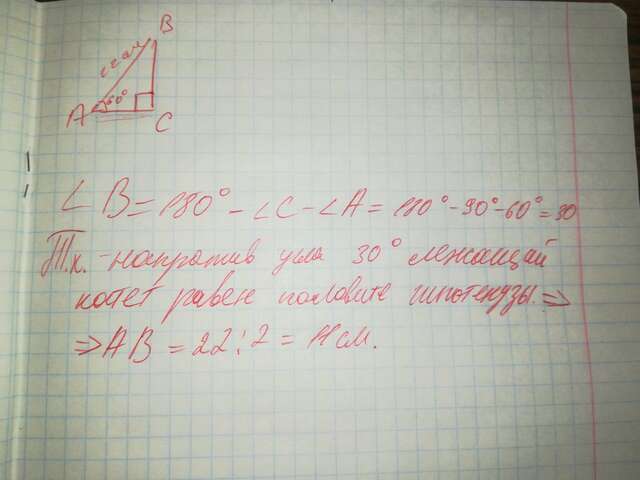 B
22 см
A 60°
C
∠B=180°-∠C-∠A=180°-90°-60°=30
Т.к. напротив угла 30° лежащий
катет равен половине гипотенузы. ⇒
⇒ AB = 22:2 = 11 см.